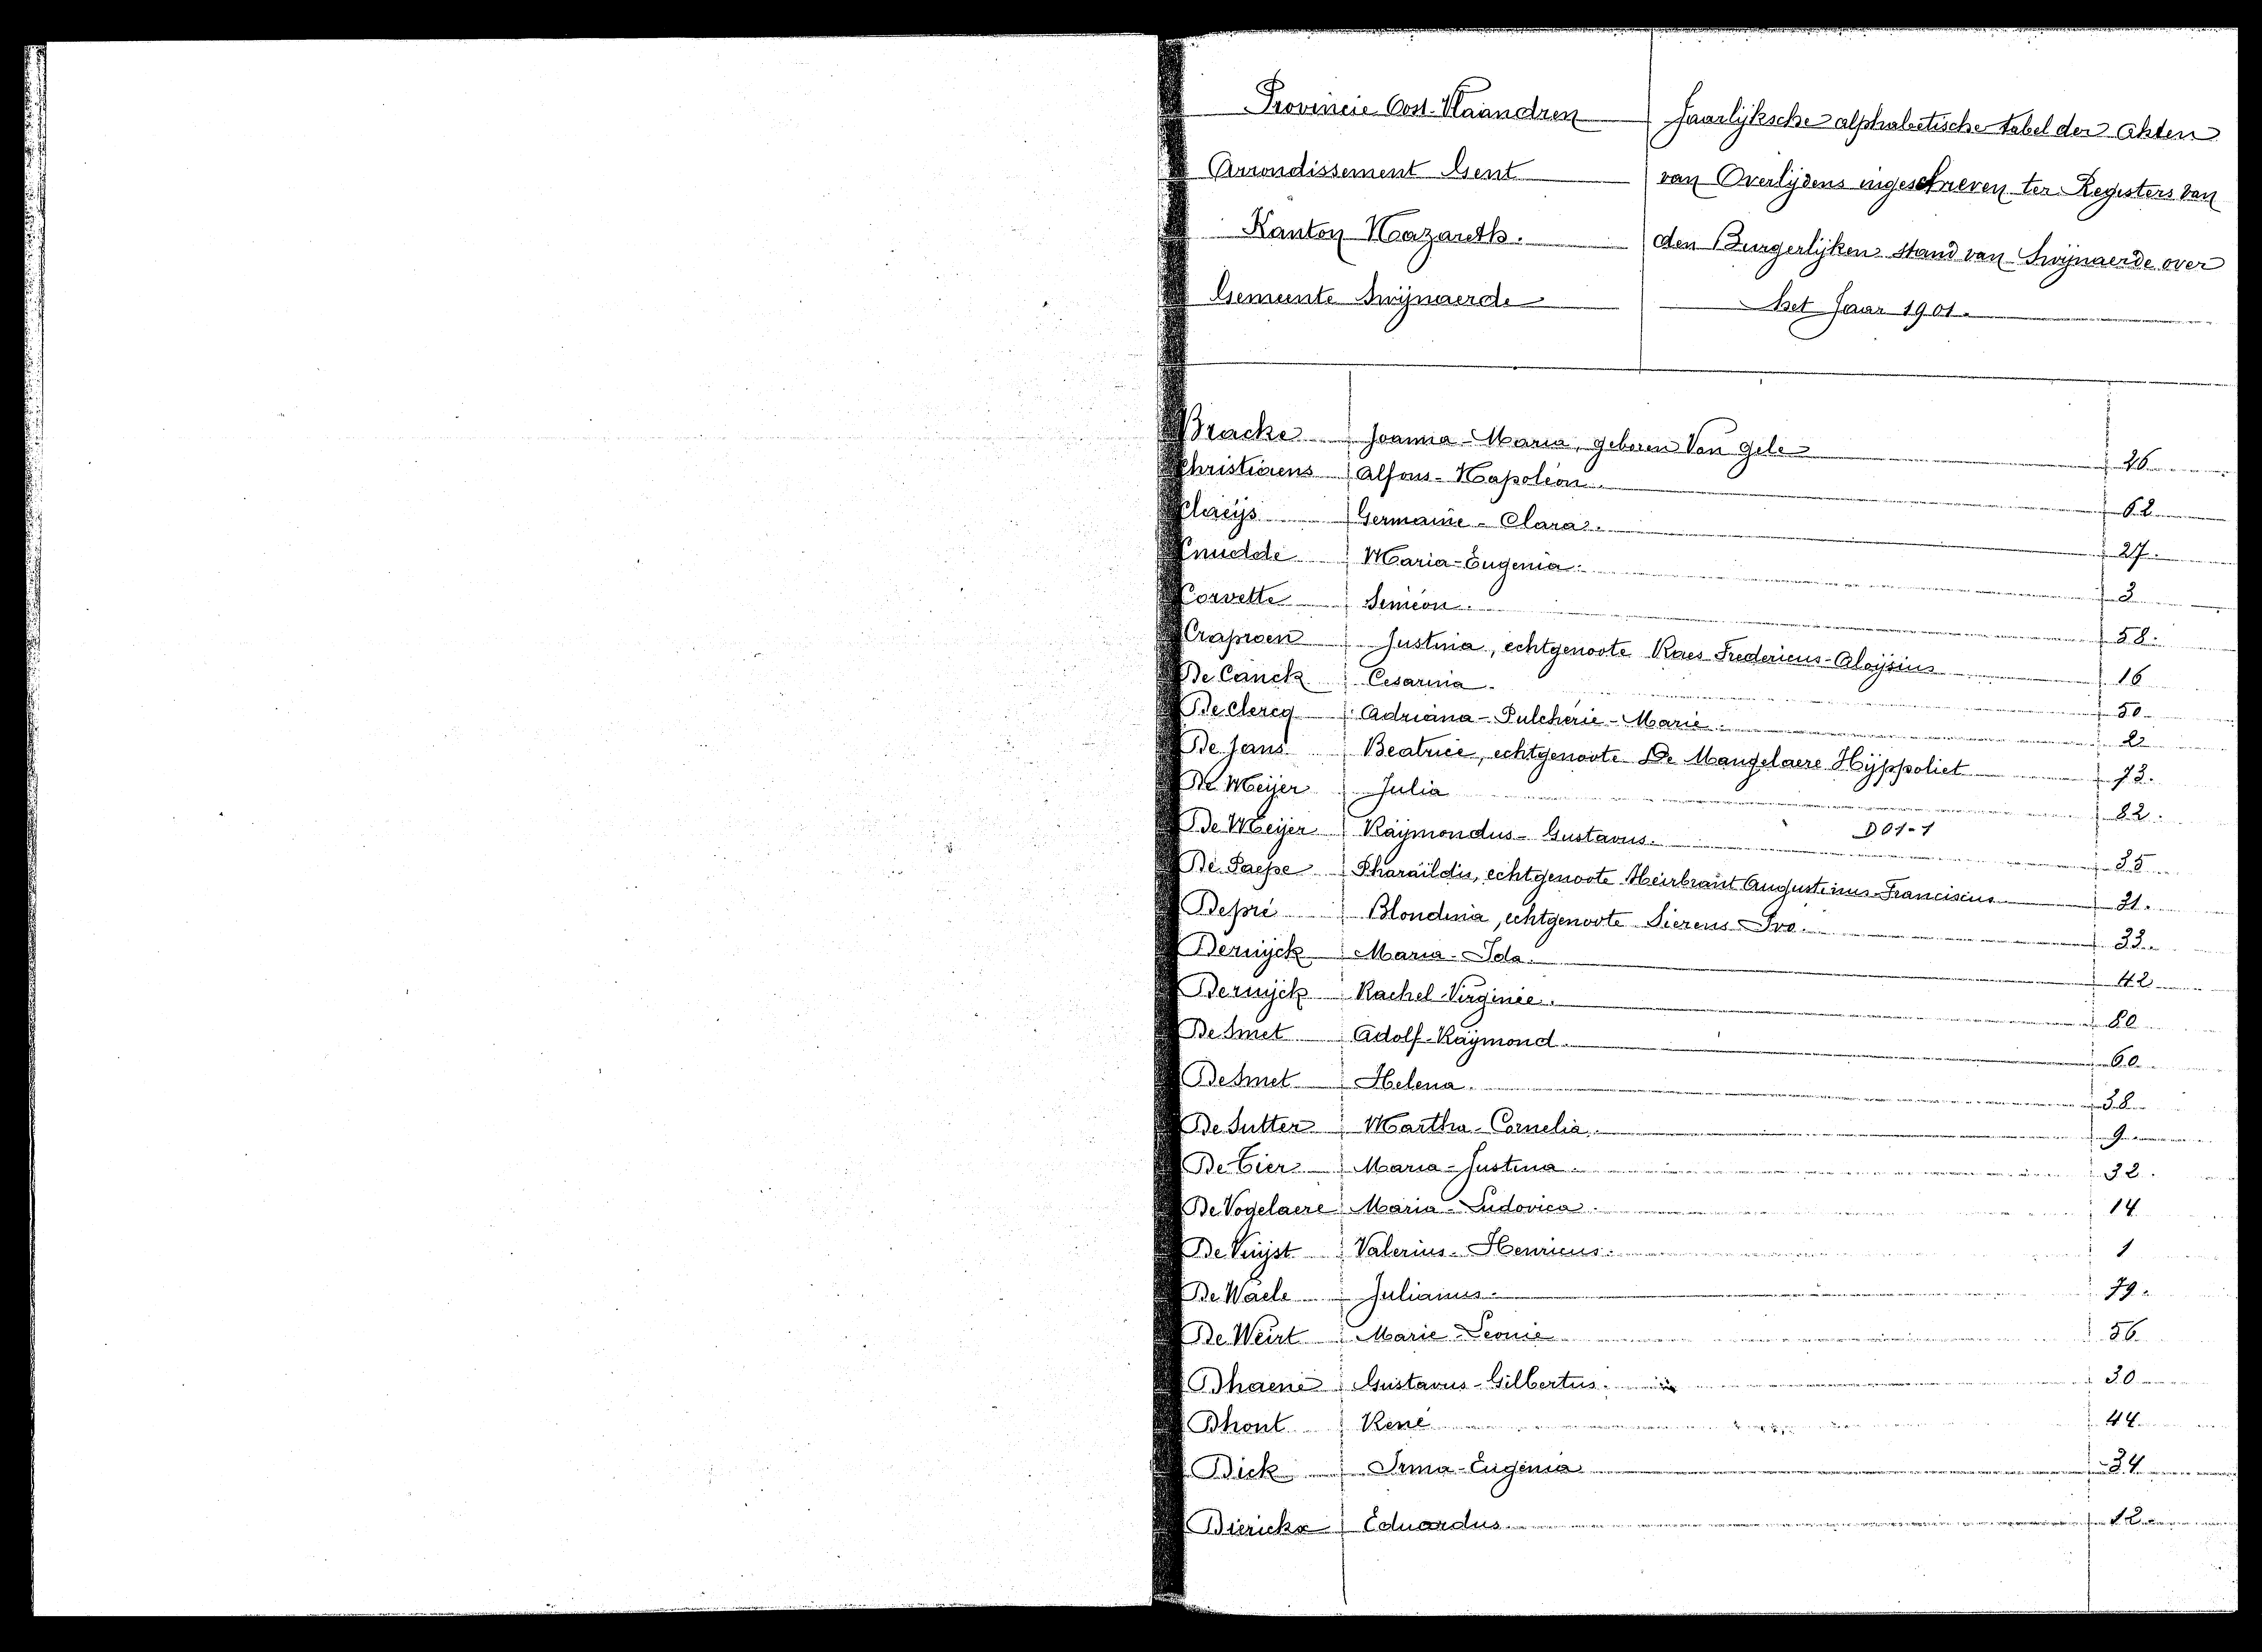 Provincie Oost-Vlaandren
Arrondissement Gent
Kanton Nazareth.
Gemeente Swijnaerde
Jaarlijksche alphabetische tabel der akten
van Overlijdens ingeschreven ter Registers van
den Burgerlijken stand van Swijnaerde over
het Jaar 1901.
Bracke Joanna-Maria, geboren Van Gele 26
Christiaens Alfons-Napoleon.
Claeijs Germaine-Clara. 27.
Cnudde Maria-Eugenia. 3
Corvette Simeon. 58.
Justina, echtgenoote Raes Fredericus-Aloijsius 16
De Canck Cesarina. 50.
De Clercq Adriana-Pulcherie-Marie. 2
De Jans Beatrice, echtgenoote De Mangelaere Hijppoliet 73.
De Meijer Julia 82.
De Meijer Raijmondus-Gustavus. D01-1 35
De Paepe Pharaïldis, echtgenoote Heirbraut Augustinus-Franciscus 21.
Depré Blondina, echtgenoote Sierens Ivo. 33.
Dernijck Maria-Ida. 42
Dernijck Rachel-Virginie.
De Smet Adolf-Raijmond. 60.
De Smet Helena. 38
De Sutter Martha-Cornelia. 9
De Tier Maria-Justina. 32.
De Vogelaere Maria-Ludovica. 14
De Vuijst Valerius-Henricus. 1
De Waele Julianus. 79.
De Weirt Marie-Leonie 56
Dhaene Gustavus-Gilbertus. 30
Dhont René 44
Dick Irma-Eugenia 34
Diericks Eduardus. 12